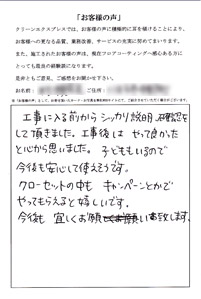 「お客様の声」
クリーンエクスプレスでは、お客様の声に積極的に耳を傾けることにより、
お客様への更なる品質、業務改善、サービスの充実に努めてまいります。
また、施工されたお客様の声は、現在フロアコーティングへ感心ある方に
とっても最良の経験談になります。
是非ともご意見、ご感想をお聞かせ下さい。
お名前： ご住所：
工事に入る前からシッカリ説明、確認を
して頂きました。工事後は やって良かった
と心から思いました。子どももいるので
今後も安心して使えそうです。
クローゼットの中も キャンペーンとかで
やってもらえると嬉しいです。
今後も 宜しくお願い致します。